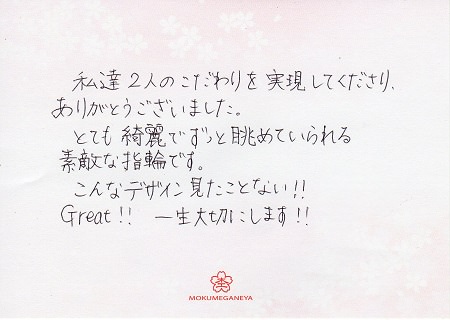 私達2人のこだわりを実現してくださり、
ありがとうございました。
とても綺麗でずっと眺めていられる
素敵な指輪です。
こんなデザイン見たことない!!
Great!! 一生大切にします!!
MOKUMEGANEYA